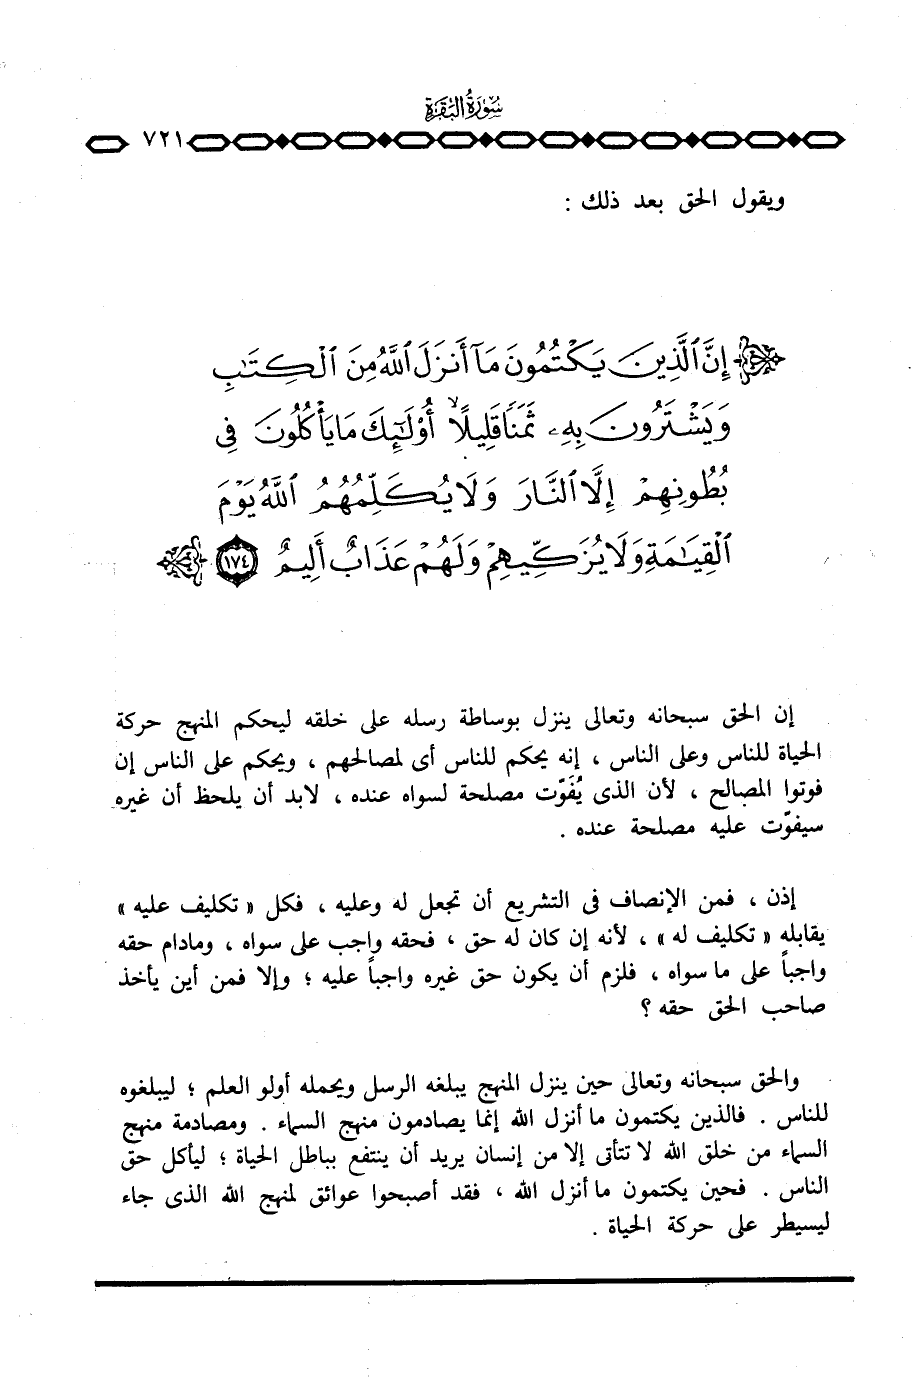 سُورَةُ البَقَرَةِ
٧٢١
ويقول الحق بعد ذلك :
إِنَّ ٱلَّذِينَ يَكْتُمُونَ مَآ أَنزَلَ ٱللَّهُ مِنَ ٱلْكِتَٰبِ
وَيَشْتَرُونَ بِهِۦ ثَمَنًا قَلِيلًا ۙ أُوْلَٰٓئِكَ مَا يَأْكُلُونَ فِى
بُطُونِهِمْ إِلَّا ٱلنَّارَ وَلَا يُكَلِّمُهُمُ ٱللَّهُ يَوْمَ
ٱلْقِيَٰمَةِ وَلَا يُزَكِّيهِمْ وَلَهُمْ عَذَابٌ أَلِيمٌ ١٧٤
إن الحق سبحانه وتعالى ينزل بوساطة رسله على خلقه ليحكم المنهج حركة
الحياة للناس وعلى الناس ، إنه يحكم للناس أى لمصالحهم ، ويحكم على الناس إن
فوتوا المصالح ، لأن الذى يُفَوّت مصلحة لسواه عنده ، لابد أن يلحظ أن غيره
سيفوّت عليه مصلحة عنده .
إذن ، فمن الإنصاف فى التشريع أن تجعل له وعليه ، فكل « تكليف عليه »
يقابله « تكليف له » ، لأنه إن كان له حق ، فحقه واجب على سواه ، ومادام حقه
واجباً على ما سواه ، فلزم أن يكون حق غيره واجباً عليه ؛ وإلا فمن أين يأخذ
صاحب الحق حقه ؟
والحق سبحانه وتعالى حين ينزل المنهج يبلغه الرسل ويحمله أولو العلم ؛ ليبلغوه
للناس . فالذين يكتمون ما أنزل الله إنما يصادمون منهج السماء . ومصادمة منهج
السماء من خلق الله لا تتأتى إلا من إنسان يريد أن ينتفع بباطل الحياة ؛ ليأكل حق
الناس . فحين يكتمون ما أنزل الله ، فقد أصبحوا عوائق لمنهج الله الذى جاء
ليسيطر على حركة الحياة .